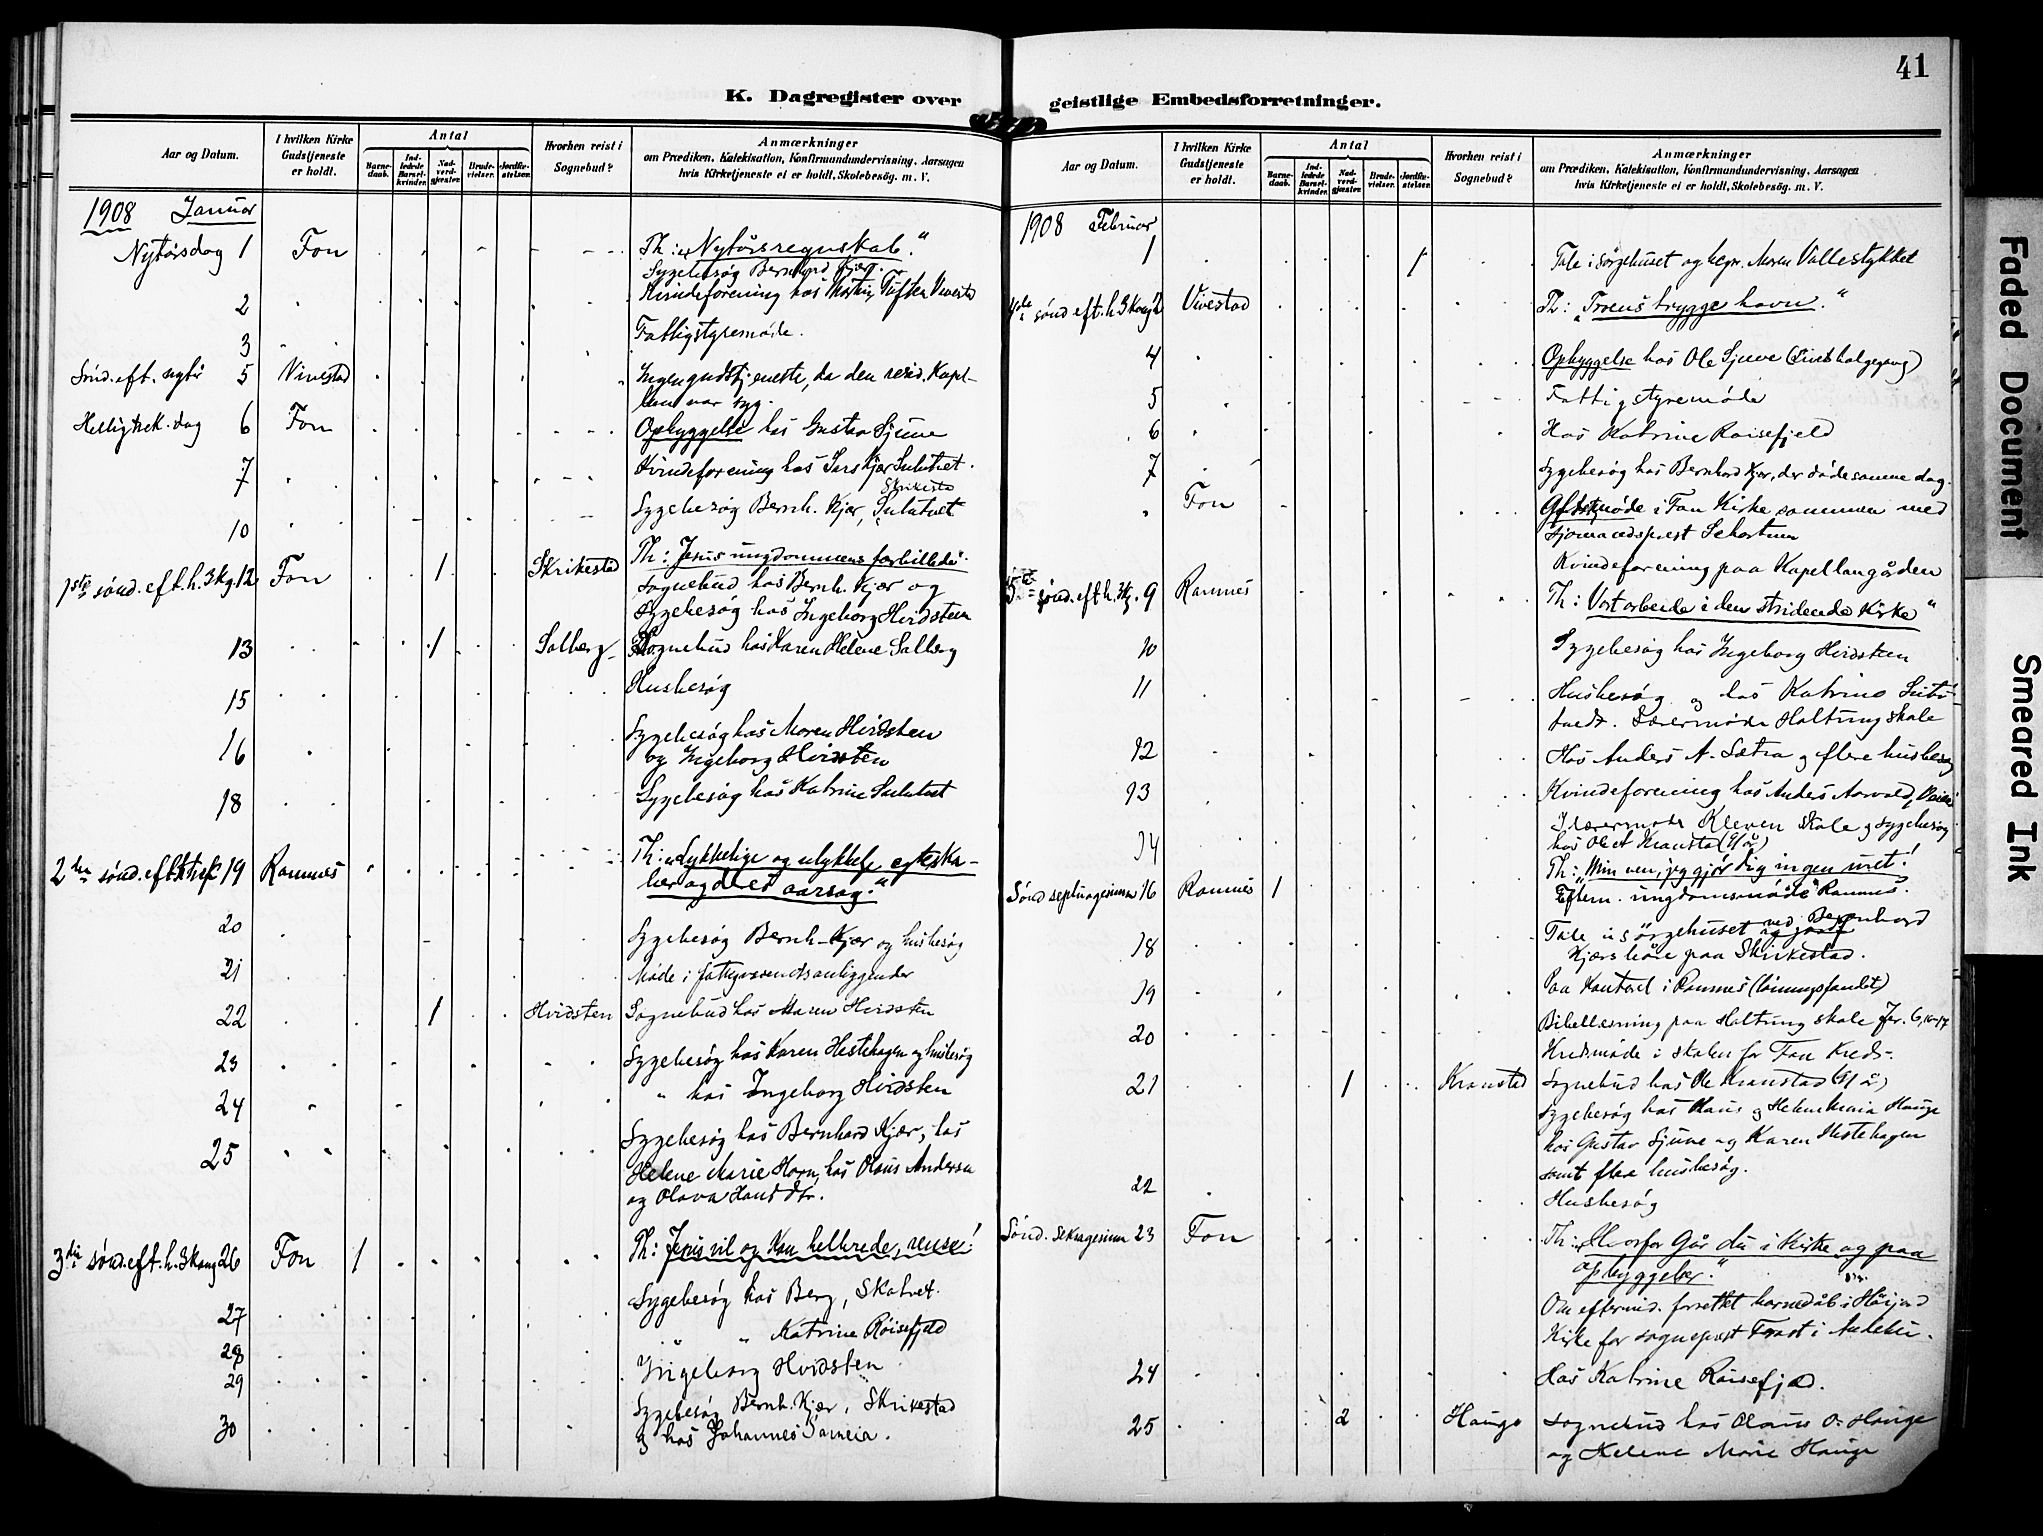 41
K. Dagregister over geistlige Embedsforretninger.
Aar og Datum.
I hvilken Kirke Gudstjeneste er holdt.
Antal
Barne-daab.
Ind-ledede Barsel-kvinder.
Nad-verd-gjester.
Brude-vielser.
Jordfæ-stelser.
Hvorhen reist i Sognebud?
Anmærkninger
om Prædiken, Katekisation, Konfirmandundervisning, Aarsagen
hvis Kirketjeneste ei er holdt, Skolebesög. m. V.
1908 Januar
Nytårsdag 1 Fon Th: „Nytårsregnskab."
Sygebesøg Bernhard Kjær.
2 Kvindeforening hos Tuften Vivestad
3 Fattigstyremøde.
Sønd. eft. nytår 5 Vivestad Ingen gudstjeneste, da den resid. Kapel-
lan var syg.
Helligtrek. dag 6 Fon Opbyggelse hos Gustav Sjuve
7 Kvindeforening hos Lars Kjær
Skrikestad
10 Sygebesøg Bernh. Kjær,
1ste sønd. eft. h. 3 kg. 12 Fon 1 Skrikestad Th: Jesus ungdommens forbillede
sognebud hos Bernh. Kjær og
Sygebesøg hos Ingeborg Hvidsteen
13 1 Solberg Sognebud hos Karen Helene Solberg
15 Husbesøg
16 Sygebesøg hos Maren Hvidsten
og Ingeborg Hvidsten
18 Sygebesøg hos Katrine
2den sønd. eft. 19 Ramnes Th: „Lykkelige og ulykkel. egteska-
ber og deres aarsag."
20 Sygebesøg Bernh. Kjær og husbesøg
21 Møde i fattigvæsentsanliggender
22 1 Hvidsten Sognebud hos Maren Hvidsten
23 Sygebesøg hos Karen Hestehagen og husbesøg
24 " hos Ingeborg Hvidsten
25 Sygebesøg hos Bernhard Kjær, hos
Helene Marie Horn, hos Olaus Andersen
og Olava Hansdtr.
3die sønd. eft. h. 3 kong 26 Fon 1 Th: Jesus vil og kan helbrede, rense!
27 Sygebesøg hos Berg, Skatvet.
28 " " Katrine Röisefjeld
29 Ingeborg Hvidsten
30 Sygebesøg Bernh. Kjær, Skrikestad
og hos Johannes
Aar og Datum.
I hvilken Kirke Gudstjeneste er holdt.
Antal
Barne-daab.
Ind-ledede Barsel-kvinder.
Nad-verd-gjester.
Brude-vielser.
Jordfæ-stelser.
Hvorhen reist i Sognebud?
Anmærkninger
om Prædiken, Katekisation, Konfirmandundervisning, Aarsagen
hvis Kirketjeneste ei er holdt, Skolebesög. m. V.
1908 Februar
1 1 Tale i sørgehuset og begr. Maren Vallestykket
4de sønd eft. h. 3 kong 2 Vivestad Th: „Troens trygge havn."
4 Opbyggelse hos Ole Sjuve
5 Fattigstyremøde
6 Hos Katrine Röisefjeld
7 Sygebesøg hos Bernhard Kjær, der døde samme dag.
" Fon i Fon Kirke sammen med
sjømandsprest
Kvindeforening paa Kapellangården
5te sønd. eft. h. 3 kg. 9 Ramnes Th: Vort arbeide i den stridende Kirke"
10 Sygebesøg hos Ingeborg Hvidsteen
11 Husbesøg og hos Katrine
Haltung skole
12 Hos Anders A. Sætra og flere husbesøg
13 Kvindeforening hos Anders Aarvold,
14 Kleven skole og sygebesøg
hos Ole Kranstad (91 år)
Sønd septuagesima 16 Ramnes 1 Th: „Min ven, jeg gjør dig ingen uret!
Eftern. ungdomsmøde Ramnes.
18 Tale i sørgehuset ved Bernhard
Kjærs båre paa Skrikestad.
19 Paa Kontoret i Ramnes
20 Bibellæsning paa Haltung skole Jer. 6, 16-17
Kredsmøde i skolen for Fon Kreds.
21 1 Kranstad Sognebud hos Ole Kranstad (91 år)
Sygebesøg hos Olaus og Helene Maria Hauge
hos Gustav Sjuve og Karen Hestehagen
samt flere husbesøg.
22 Husbesøg
Sønd. seksagesima 23 Fon Th: „Hvorfor Går du i kirke og paa
opbyggelser."
Om eftermid. forrettet barnedåb i Höijord
Kirke for sogneprest i Andebu.
24 Hos Katrine Röisefjed.
25 2 Hauge Sognebud hos Olaus O. Hauge
og Helene Marie Hauge
Faded Document
Smeared Ink